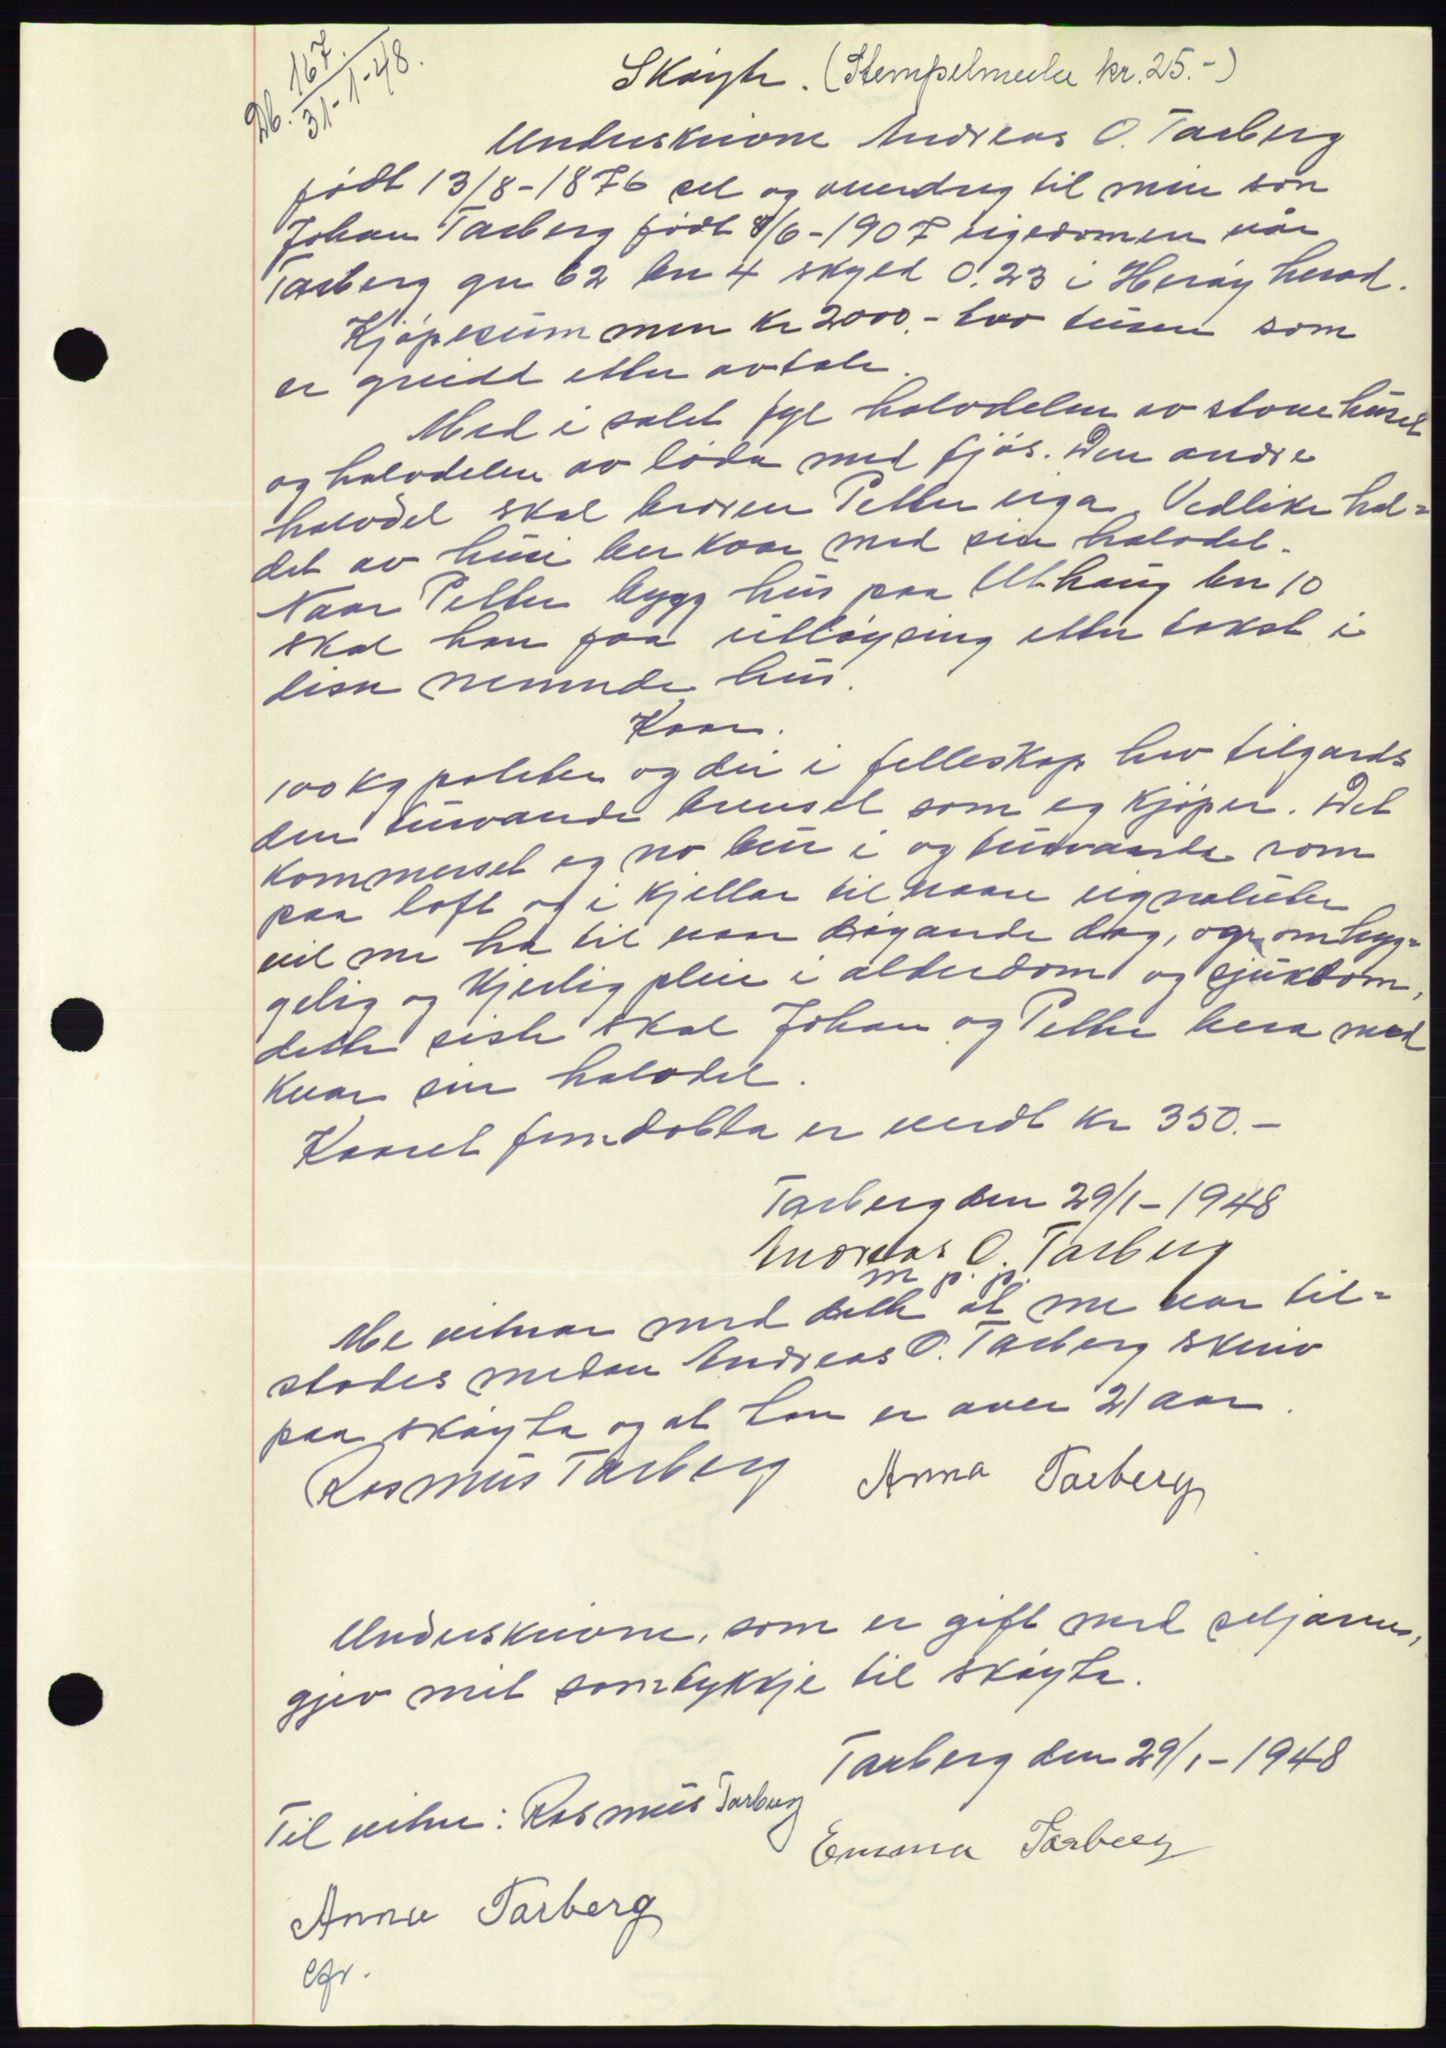 Db. 167.
31-1-48.
Skøyte. (Stempelmerke kr. 25.-)
Underskrivne Andreas O. Tarberg
født 13/8-1876 sel og overdreg til min son
Johan Tarberg født 8/6-1907 eigedomen vår
Tarberg gr 62 br 4 skyld 0.23 i Herøy herad.
Kjøpesummen kr 2000.- two tusen som
er greidd etter avtale.
Med i salet fyl halvdelen av stovehuset
og halvdelen av løda med fjøs. Den andre
halvdel skal broren Petter eiga. Vedlikehal=
det av husi ber kvar med sin halvdel.
Naar Petter bygg hus paa Uthaug bn 10
skal han faa utløysing etter takst i
disse nemnde hus.
Kaar.
100 kg poteter og dei i felleskap hev tilgards
den turvande brensel som eg kjøper. Det
kommerset eg no bur i og turvande rom
paa loft og i kjellar til vaare eignaluter
vil me ha til vaar døyande dag, og omhyg=
gelig og kjerlig pleie i alderdom og sjukdom,
dette siste skal Johan og Petter bera med
kvar sin halvdel.
Kaaret femdobla er verdt kr 350.-
Tarberg den 29/1-1948
Andreas O. Tarberg
m. p. p.
Me vitnar med dette at me var til=
stades medan Andreas O. Tarberg skreiv
paa skøyta og at han er over 21 aar.
Rasmus Tarberg Anna Tarberg
Underskrivne, som er gift med seljaren,
gjev mit samtykkje til skøyta.
Tarberg den 29/1-1948
Til vitne: Rasmus Tarberg
Emma Tarberg
Anna Tarberg
efr.